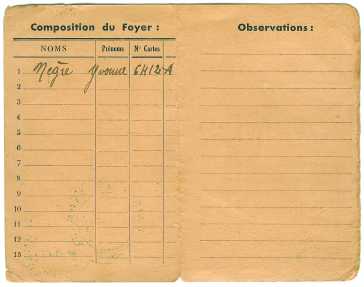 Composition du Foyer :
NOMS Prénoms N° Cartes
1 Nègre Yvonne
2
3
4
5
6
7
8
9
10
11
12
13
Observations :